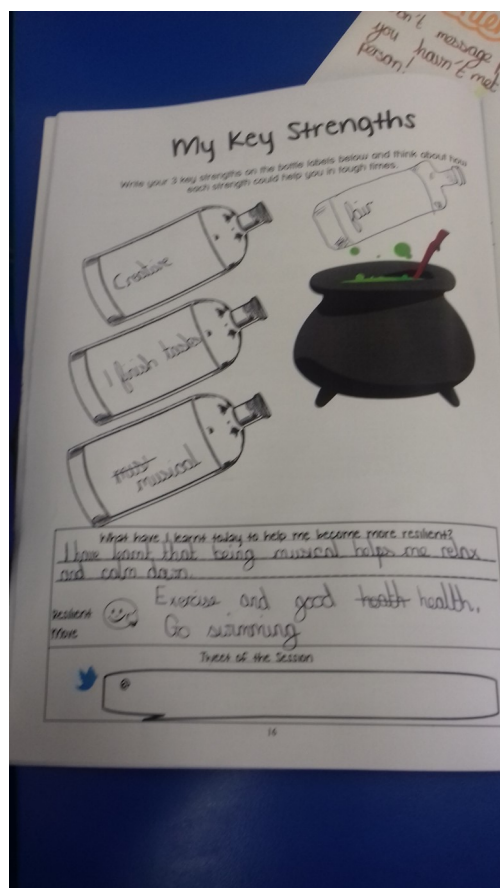 on't message
you hasn't met
person!
My Key Strengths
Write your 3 key strengths on the bottle labels below and think about how
each strength could help you in tough times.
fair
Creative
I finish tasks
musical
What have I learnt today to help me become more resilient?
I have learnt that being musical helps me relax
and calm down.
Resilient
Move
Exercise and good health health.
Go swimming
Tweet of the Session
@
16